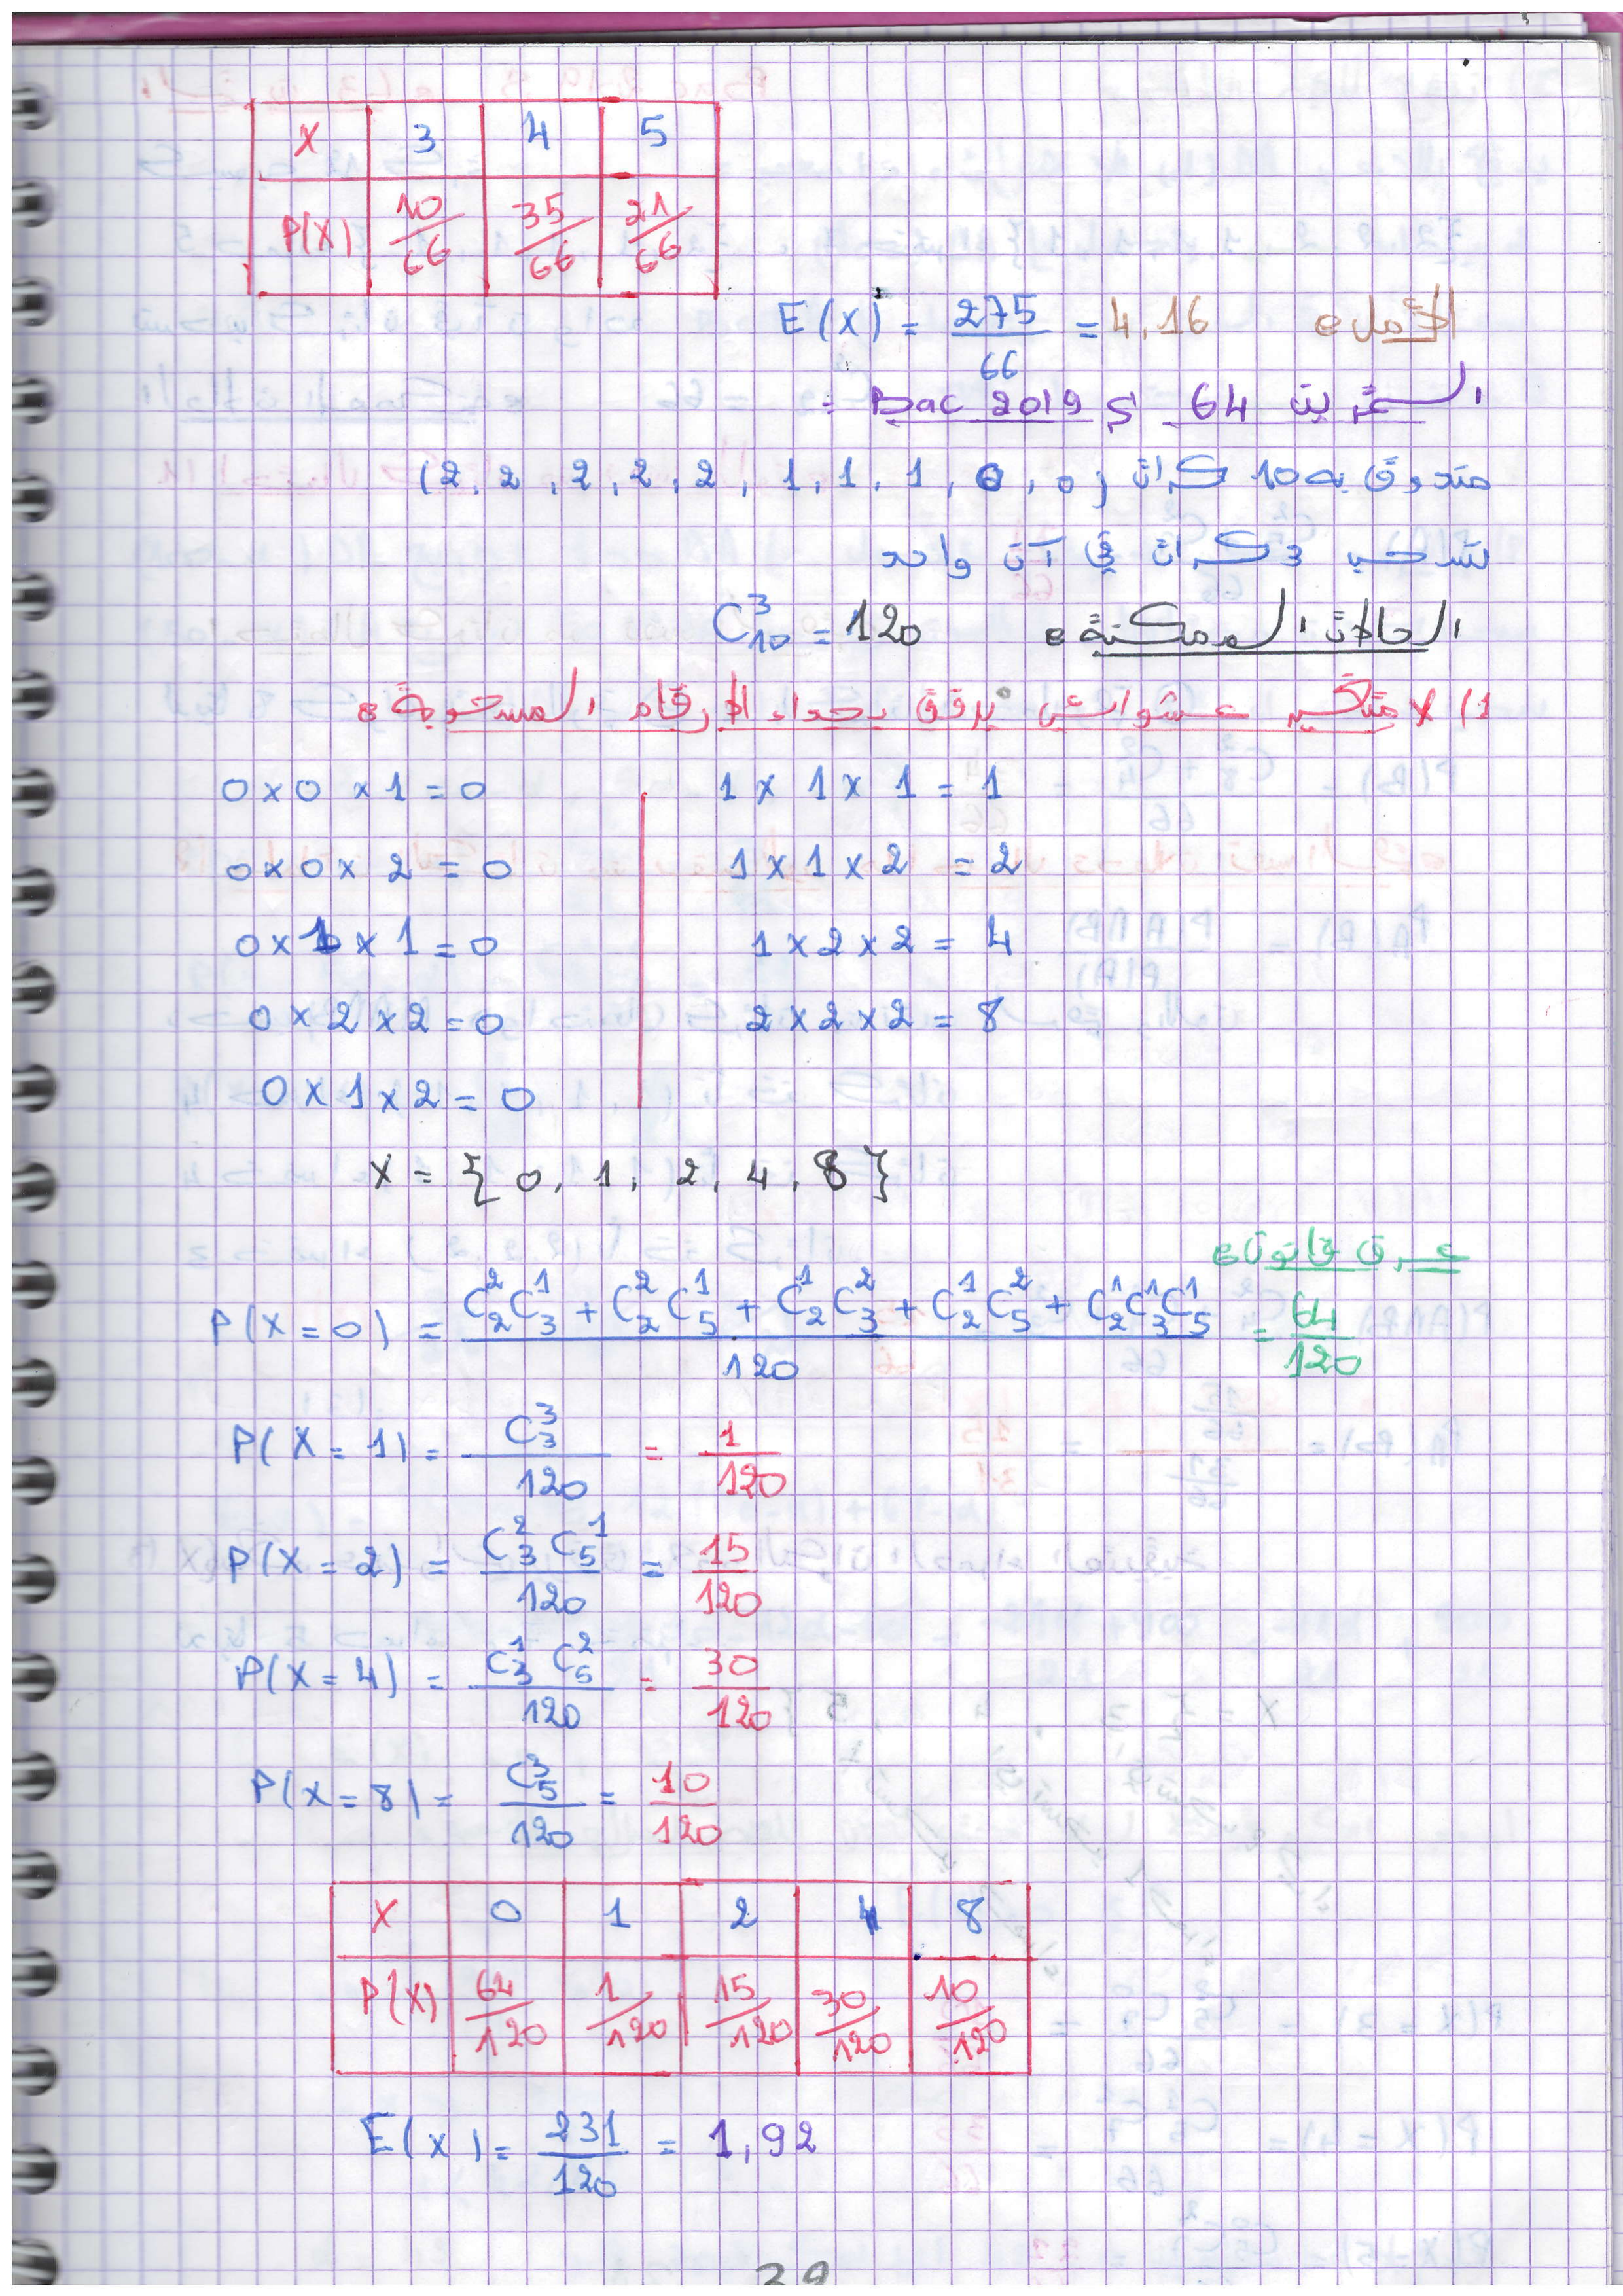 X 3 4 5
P(X) 10/66 35/66 21/66
الأمل: E(X) = 275/66 = 4,16
التمرين 64 Bac 2019 S :
صندوق به 10 كرات (0, 0, 1, 1, 1, 2, 2, 2, 2, 2)
نسحب 3 كرات في آن واحد
الحالات الممكنة: C_10^3 = 120
1) X متغير عشوائي يرفق بجداء الأرقام المسحوبة:
0 x 0 x 1 = 0 1 x 1 x 1 = 1
0 x 0 x 2 = 0 1 x 1 x 2 = 2
0 x 1 x 1 = 0 1 x 2 x 2 = 4
0 x 2 x 2 = 0 2 x 2 x 2 = 8
0 x 1 x 2 = 0
X = { 0, 1, 2, 4, 8 }
قانون:
P(X = 0) = (C_2^2 C_3^1 + C_2^2 C_5^1 + C_2^1 C_3^2 + C_2^1 C_5^2 + C_2^1 C_3^1 C_5^1)/120 = 64/120
P(X = 1) = C_3^3/120 = 1/120
P(X = 2) = C_3^2 C_5^1/120 = 15/120
P(X = 4) = C_3^1 C_5^2/120 = 30/120
P(X = 8) = C_5^3/120 = 10/120
X 0 1 2 4 8
P(X) 64/120 1/120 15/120 30/120 10/120
E(X) = 231/120 = 1,92
39